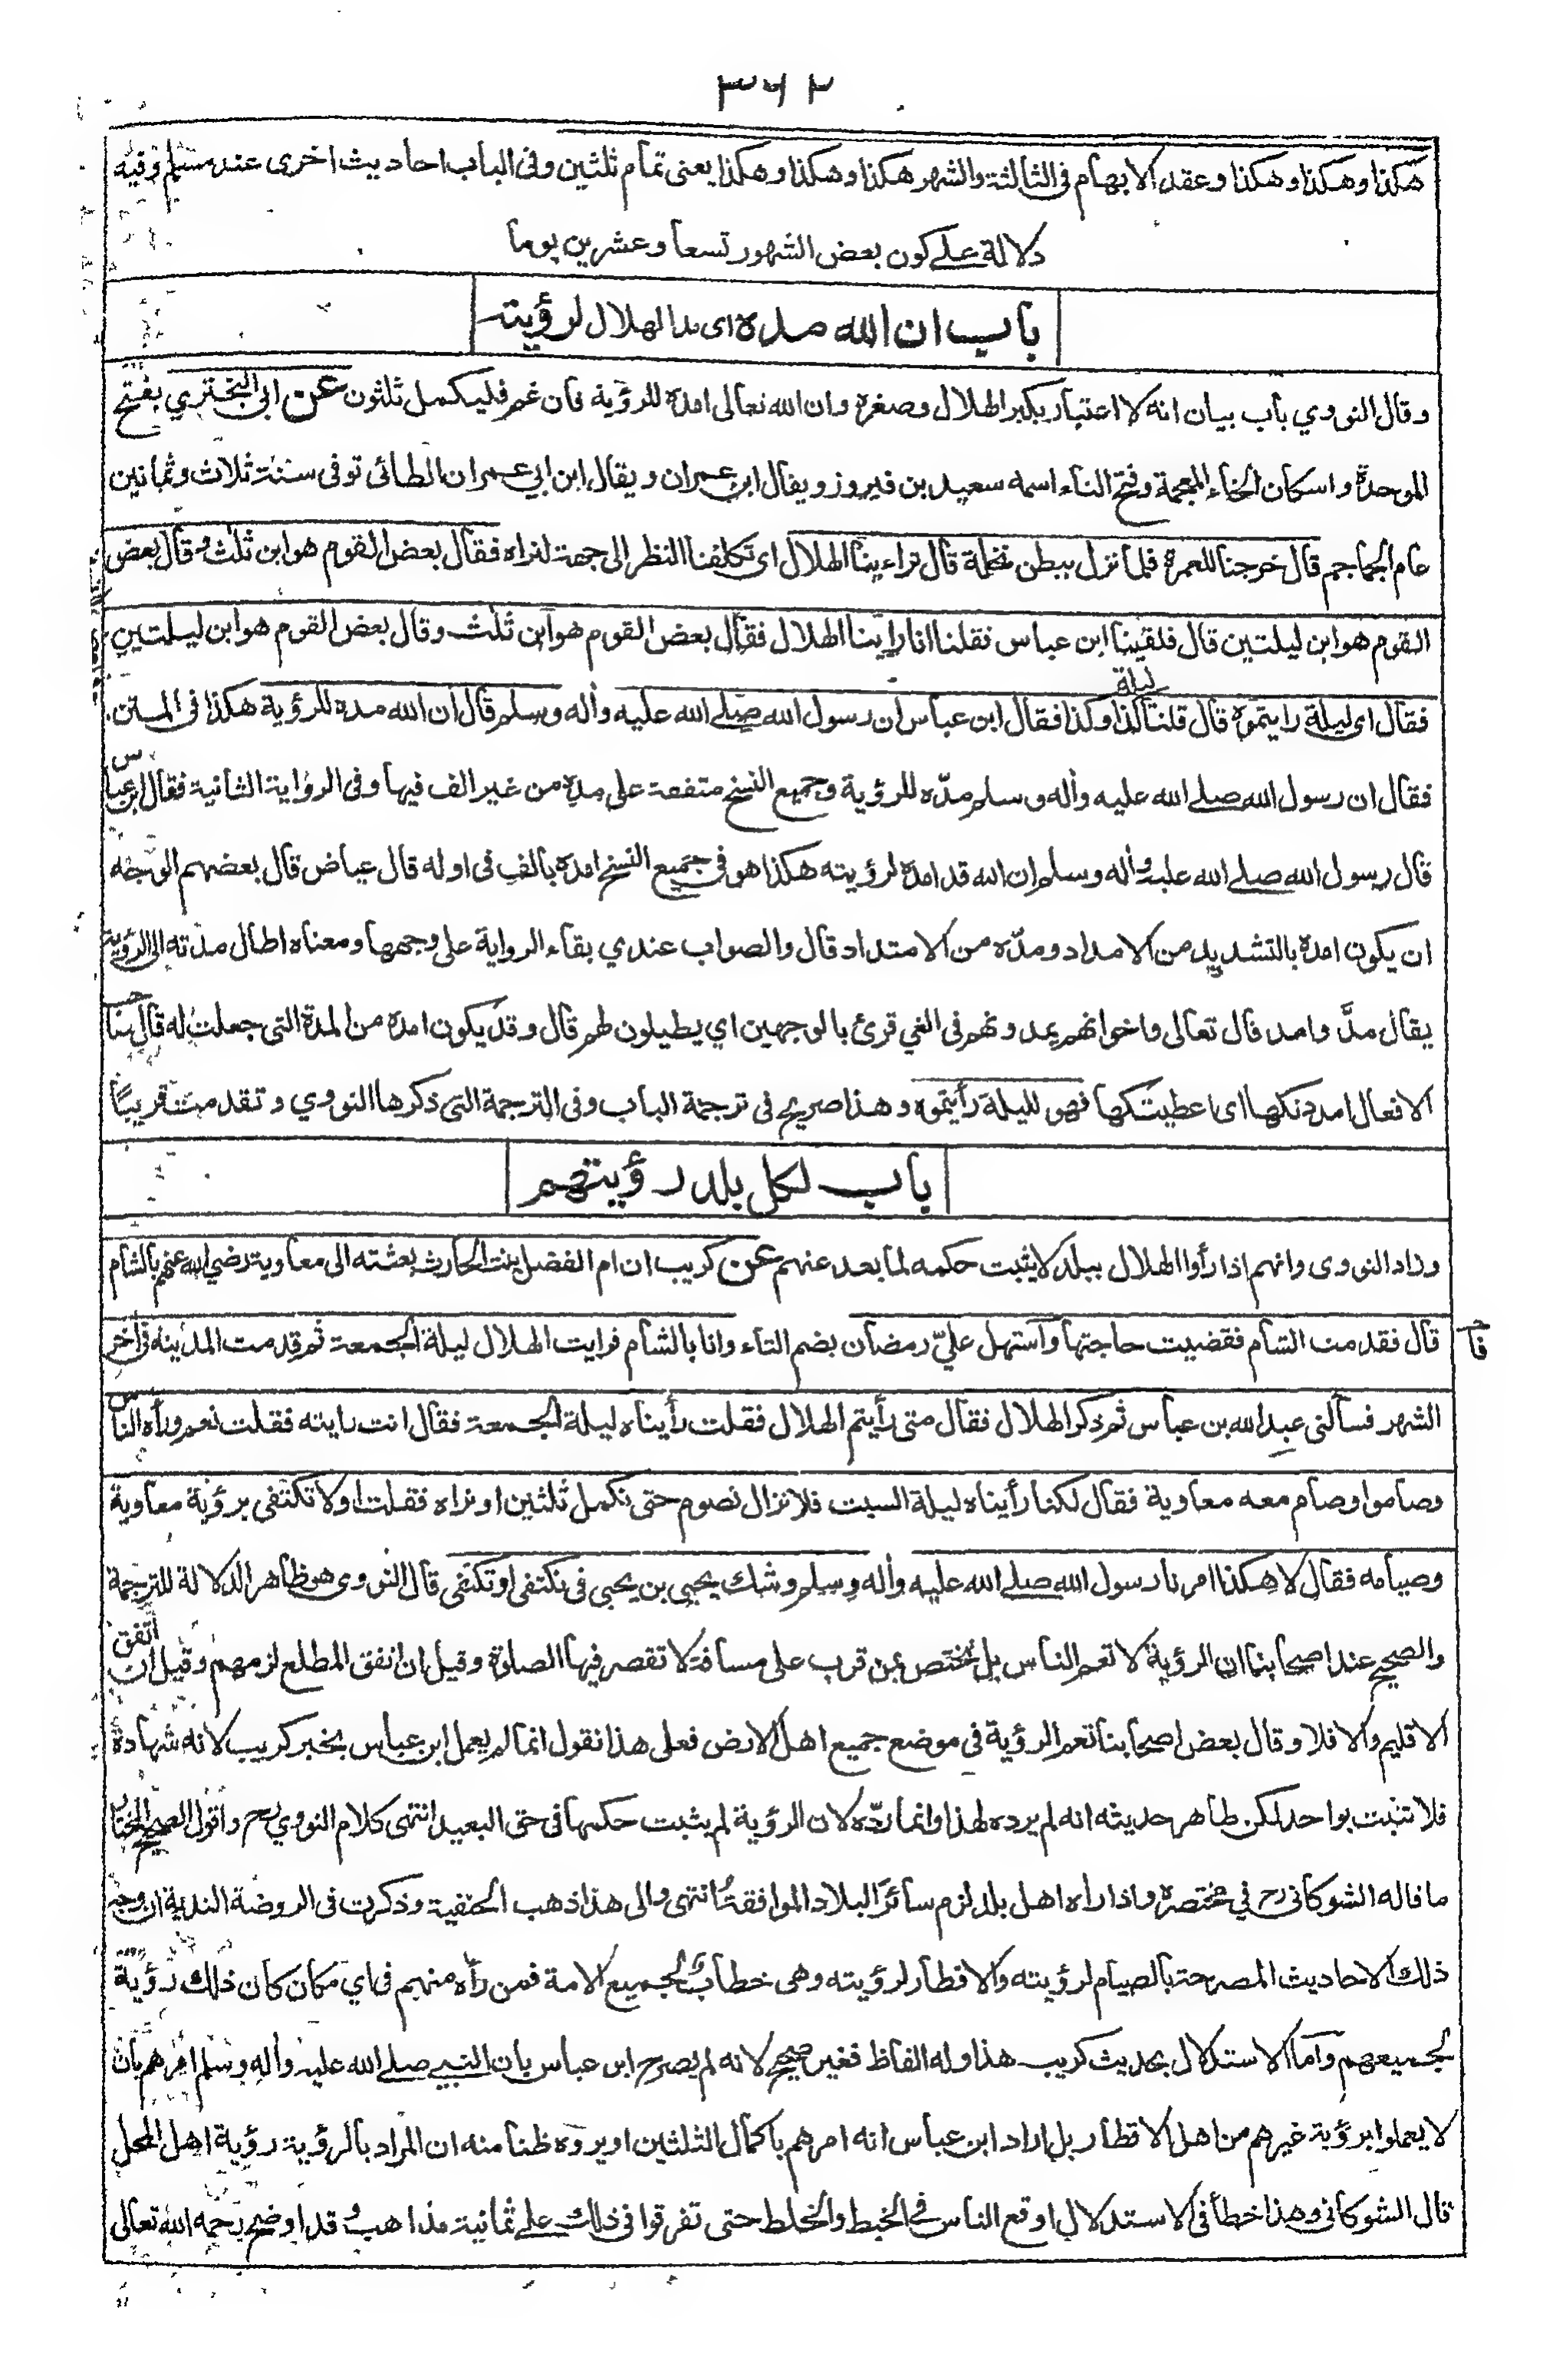 ٣٦٢
هكذا وهكذا وهكذا وعقد الابهام فى الثالثة والشهر هكذا وهكذا وهكذا يعنى تمام ثلثين وفى الباب احاديث اخرى عند مسلم وفيه
دلالة على كون بعض الشهور تسعا وعشرين يوما
باب ان الله مده اى مد الهلال لرؤيته
وقال النووي باب بيان انه لا اعتبار بكبر الهلال وصغره وان الله تعالى امده للرؤية فان غم فليكمل ثلثون عن ابى البختري بفتح
الموحدة واسكان الخاء المعجمة وفتح التاء اسمه سعيد بن فيروز ويقال ابن عمران ويقال ابن ابي عمران الطائى توفى سنة ثلاث وثمانين
عام الجماجم قال خرجنا للعمرة فلما نزل ببطن نخلة قال تراءينا الهلال اى تكلفنا النظر الى جهة لنراه فقال بعض القوم هو ابن ثلث وقال بعض
القوم هو ابن ليلتين قال فلقينا ابن عباس فقلنا انا راينا الهلال فقال بعض القوم هو ابن ثلث وقال بعض القوم هو ابن ليلتين
فقال اى ليلة رايتموه قال قلنا ليلة كذا وكذا فقال ابن عباس ان رسول الله صلى الله عليه واله وسلم قال ان الله مده للرؤية هكذا فى المتن
فقال ان رسول الله صلى الله عليه واله وسلم مدّه للرؤية وجميع النسخ متفقة على مده من غير الف فيها وفى الرواية الثانية فقال ابن عباس
قال رسول الله صلى الله عليه واله وسلم ان الله قد امده لرؤيته هكذا هو فى جميع النسخ امده بالف فى اوله قال عياض قال بعضهم الوجه
ان يكون امده بالتشديد من الامداد ومدّه من الامتداد قال والصواب عندي بقاء الرواية على وجهها ومعناه اطال مدته الى الرؤية
يقال مدَّ وامد قال تعالى واخوانهم يمدونهم فى الغي قرئ بالوجهين اي يطيلون لهم قال وقد يكون امده من المدة التى جعلت له قال صاحب
الافعال امددتكها اى اعطيتكها فهو لليلة رأيتموه وهذا صريح فى ترجمة الباب وفى الترجمة التى ذكرها النووي وتقدمت قريبًا
باب لكل بلد رؤيتهم
وزاد النووى وانهم اذا رأوا الهلال ببلد لا يثبت حكمه لما بعد عنهم عن كريب ان ام الفضل بنت الحارث بعثته الى معاوية رضي الله عنهم بالشام
قال فقدمت الشام فقضيت حاجتها واستهل عليّ رمضان بضم التاء وانا بالشام فرايت الهلال ليلة الجمعة ثم قدمت المدينة فى اخر
الشهر فسألنى عبد الله بن عباس ثم ذكر الهلال فقال متى رأيتم الهلال فقلت رأيناه ليلة الجمعة فقال انت رايته فقلت نعم ورأه الناس
وصاموا وصام معه معاوية فقال لكنا رأيناه ليلة السبت فلا نزال نصوم حتى نكمل ثلثين او نراه فقلت اولا تكتفى برؤية معاوية
وصيامه فقال لا هكذا امرنا رسول الله صلى الله عليه واله وسلم وشك يحيى بن يحيى فى نكتفى او تكتفى قال النووى هو ظاهر الدلالة للترجمة
والصحيح عند اصحابنا ان الرؤية لا تعم الناس بل تختص بمن قرب على مسافة لا تقصر فيها الصلوة وقيل ان اتفق المطلع لزمهم وقيل ان اتفق
الاقليم والا فلا وقال بعض اصحابنا تعم الرؤية فى موضع جميع اهل الارض فعلى هذا نقول انما لم يعمل ابن عباس بخبر كريب لانه شهادة
فلا تثبت بواحد لكن ظاهر حديثه انه لم يرده لهذا وانما ردّه لان الرؤية لم يثبت حكمها فى حق البعيد انتهى كلام النووي رح واقول الصحيح المختار
ما قاله الشوكانى رح في مختصره واذا راه اهل بلد لزم سائر البلاد الموافقة انتهى والى هذا ذهب الحنفية وذكرت فى الروضة الندية ان وجه
ذلك الاحاديث المصرحة بالصيام لرؤيته والافطار لرؤيته وهى خطاب لجميع الامة فمن رأه منهم فى اي مكان كان ذلك رؤية
لجميعهم واما الاستدلال بحديث كريب هذا وله الفاظ فغير صحيح لانه لم يصرح ابن عباس بان النبي صلى الله عليه واله وسلم امرهم بان
لا يعملوا برؤية غيرهم من اهل الاقطار بل اراد ابن عباس انه امرهم باكمال الثلثين او يروه ظنا منه ان المراد بالرؤية رؤية اهل المحل
قال الشوكانى وهذا خطأ فى الاستدلال اوقع الناس فى الخبط والخلط حتى تفرقوا فى ذلك على ثمانية مذاهب وقد اوضح رحمه الله تعالى